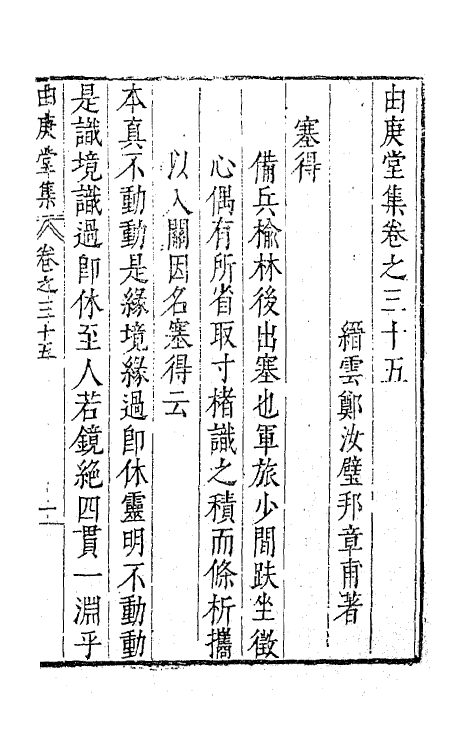 由庚堂集卷之三十五
縉雲鄭汝璧邦章甫著
塞得
備兵榆林後出塞也軍旅少間趺坐徵
心偶有所省取寸楮識之積而條析攜
以入關因名塞得云
本真不動動是緣境緣過卽休靈明不動動
是識境識過卽休至人若鏡絕四貫一淵乎
由庚堂集 卷之三十五 一